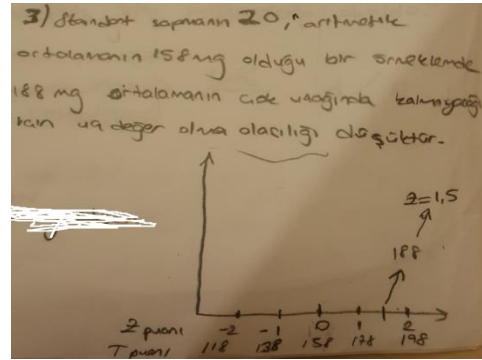 3) Standart sapmanın 20, aritmetik
ortalamanın 158 mg olduğu bir örneklemde
188 mg ortalamanın çok uzağında kalmayacağı
için uç değer olma olasılığı düşüktür.
Z=1,5
188
Z puanı -2 -1 0 1 2
T puanı 118 138 158 178 198